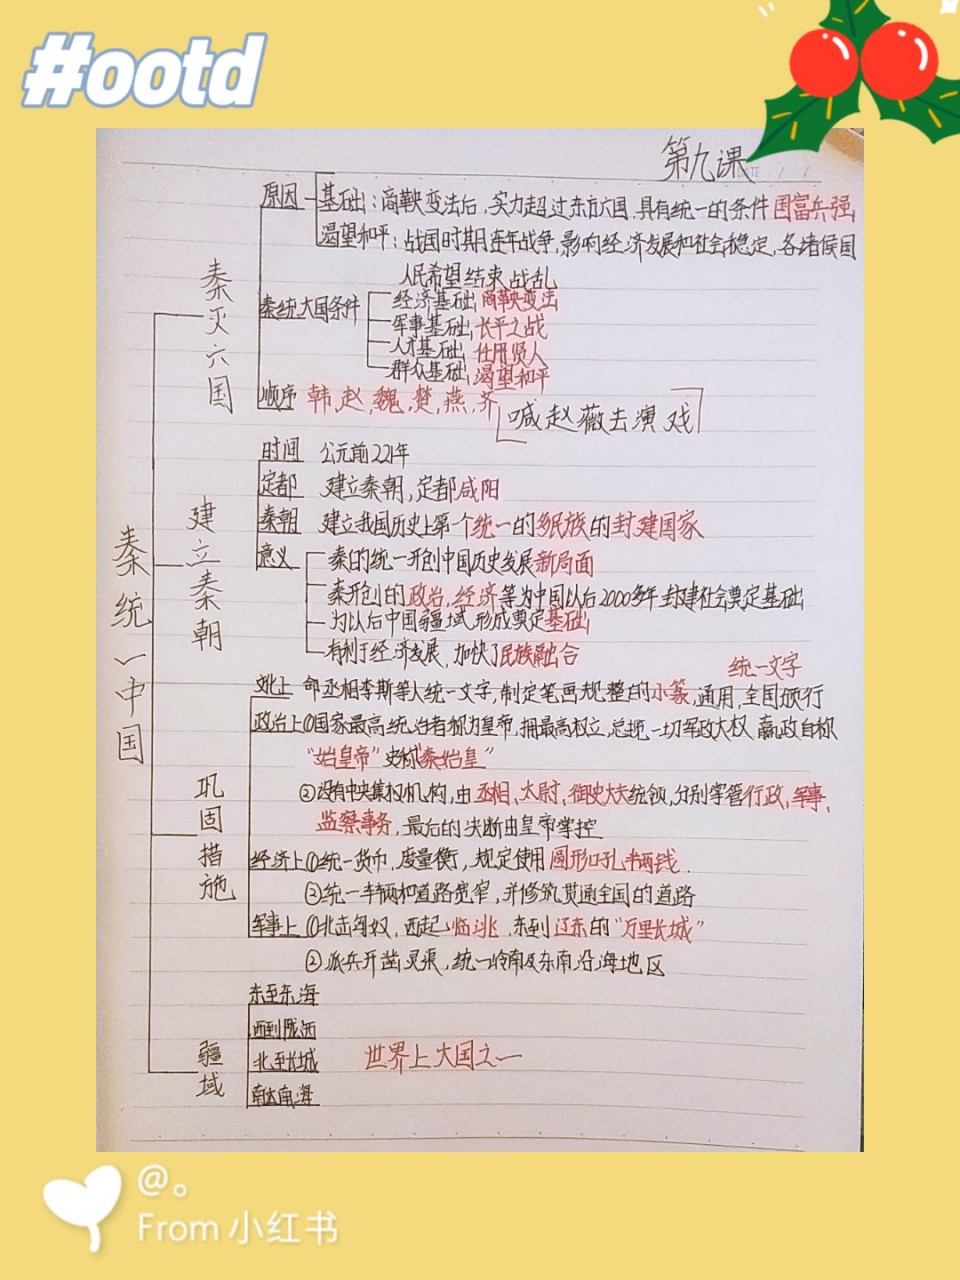 #ootd
第九课
原因 基础：商鞅变法后，实力超过东方六国，具有统一的条件 国富兵强
渴望和平：战国时期连年战争，影响经济发展和社会稳定，各诸侯国
人民希望结束战乱
秦灭六国
秦统六国条件
经济基础 商鞅变法
军事基础 长平之战
人才基础 任用贤人
群众基础 渴望和平
顺序 韩,赵,魏,楚,燕,齐
喊赵薇去演戏
秦统一中国
建立秦朝
时间 公元前221年
定都 建立秦朝,定都咸阳
秦朝 建立我国历史上第一个统一的多民族的封建国家
意义 秦的统一开创中国历史发展新局面
秦开创的政治,经济等为中国以后2000多年封建社会奠定基础
为以后中国疆域形成奠定基础
有利于经济发展,加快了民族融合
统一文字
巩固措施
文化上 命丞相李斯等人统一文字,制定笔画规整的小篆,通用,全国颁行
政治上 ①国家最高统治者称为皇帝,拥最高权立,总揽一切军政大权 嬴政自称
"始皇帝"史称"秦始皇"
②设有中央集权机构,由丞相、太尉、御史大夫统领,分别掌管行政、军事、
监察事务,最后的决断由皇帝掌控
经济上 ①统一货币,度量衡,规定使用圆形口孔半两钱.
②统一车辆和道路宽窄,并修筑贯通全国的道路
军事上 ①北击匈奴,西起临洮 东到辽东的"万里长城"
②派兵开凿灵渠,统一岭南及东南沿海地区
疆域
东至东海
西到陇西
北至长城 世界上大国之一
南达南海
@。
From 小红书